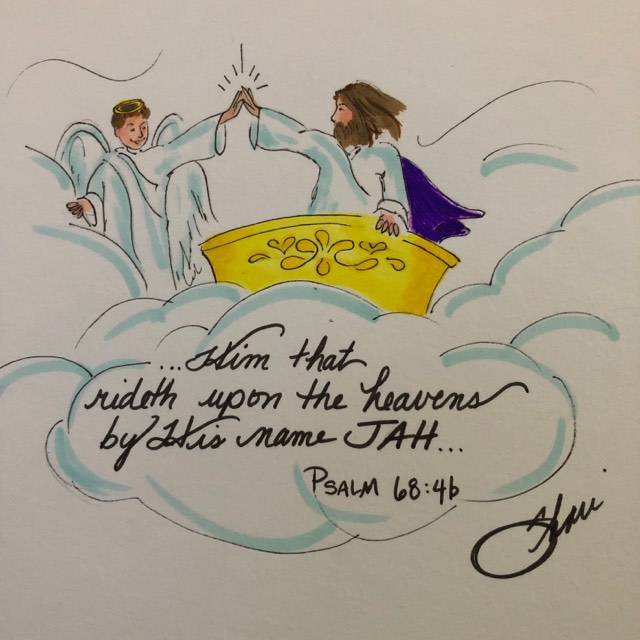 ...Him that
rideth upon the heavens
by His name JAH...
Psalm 68:4b